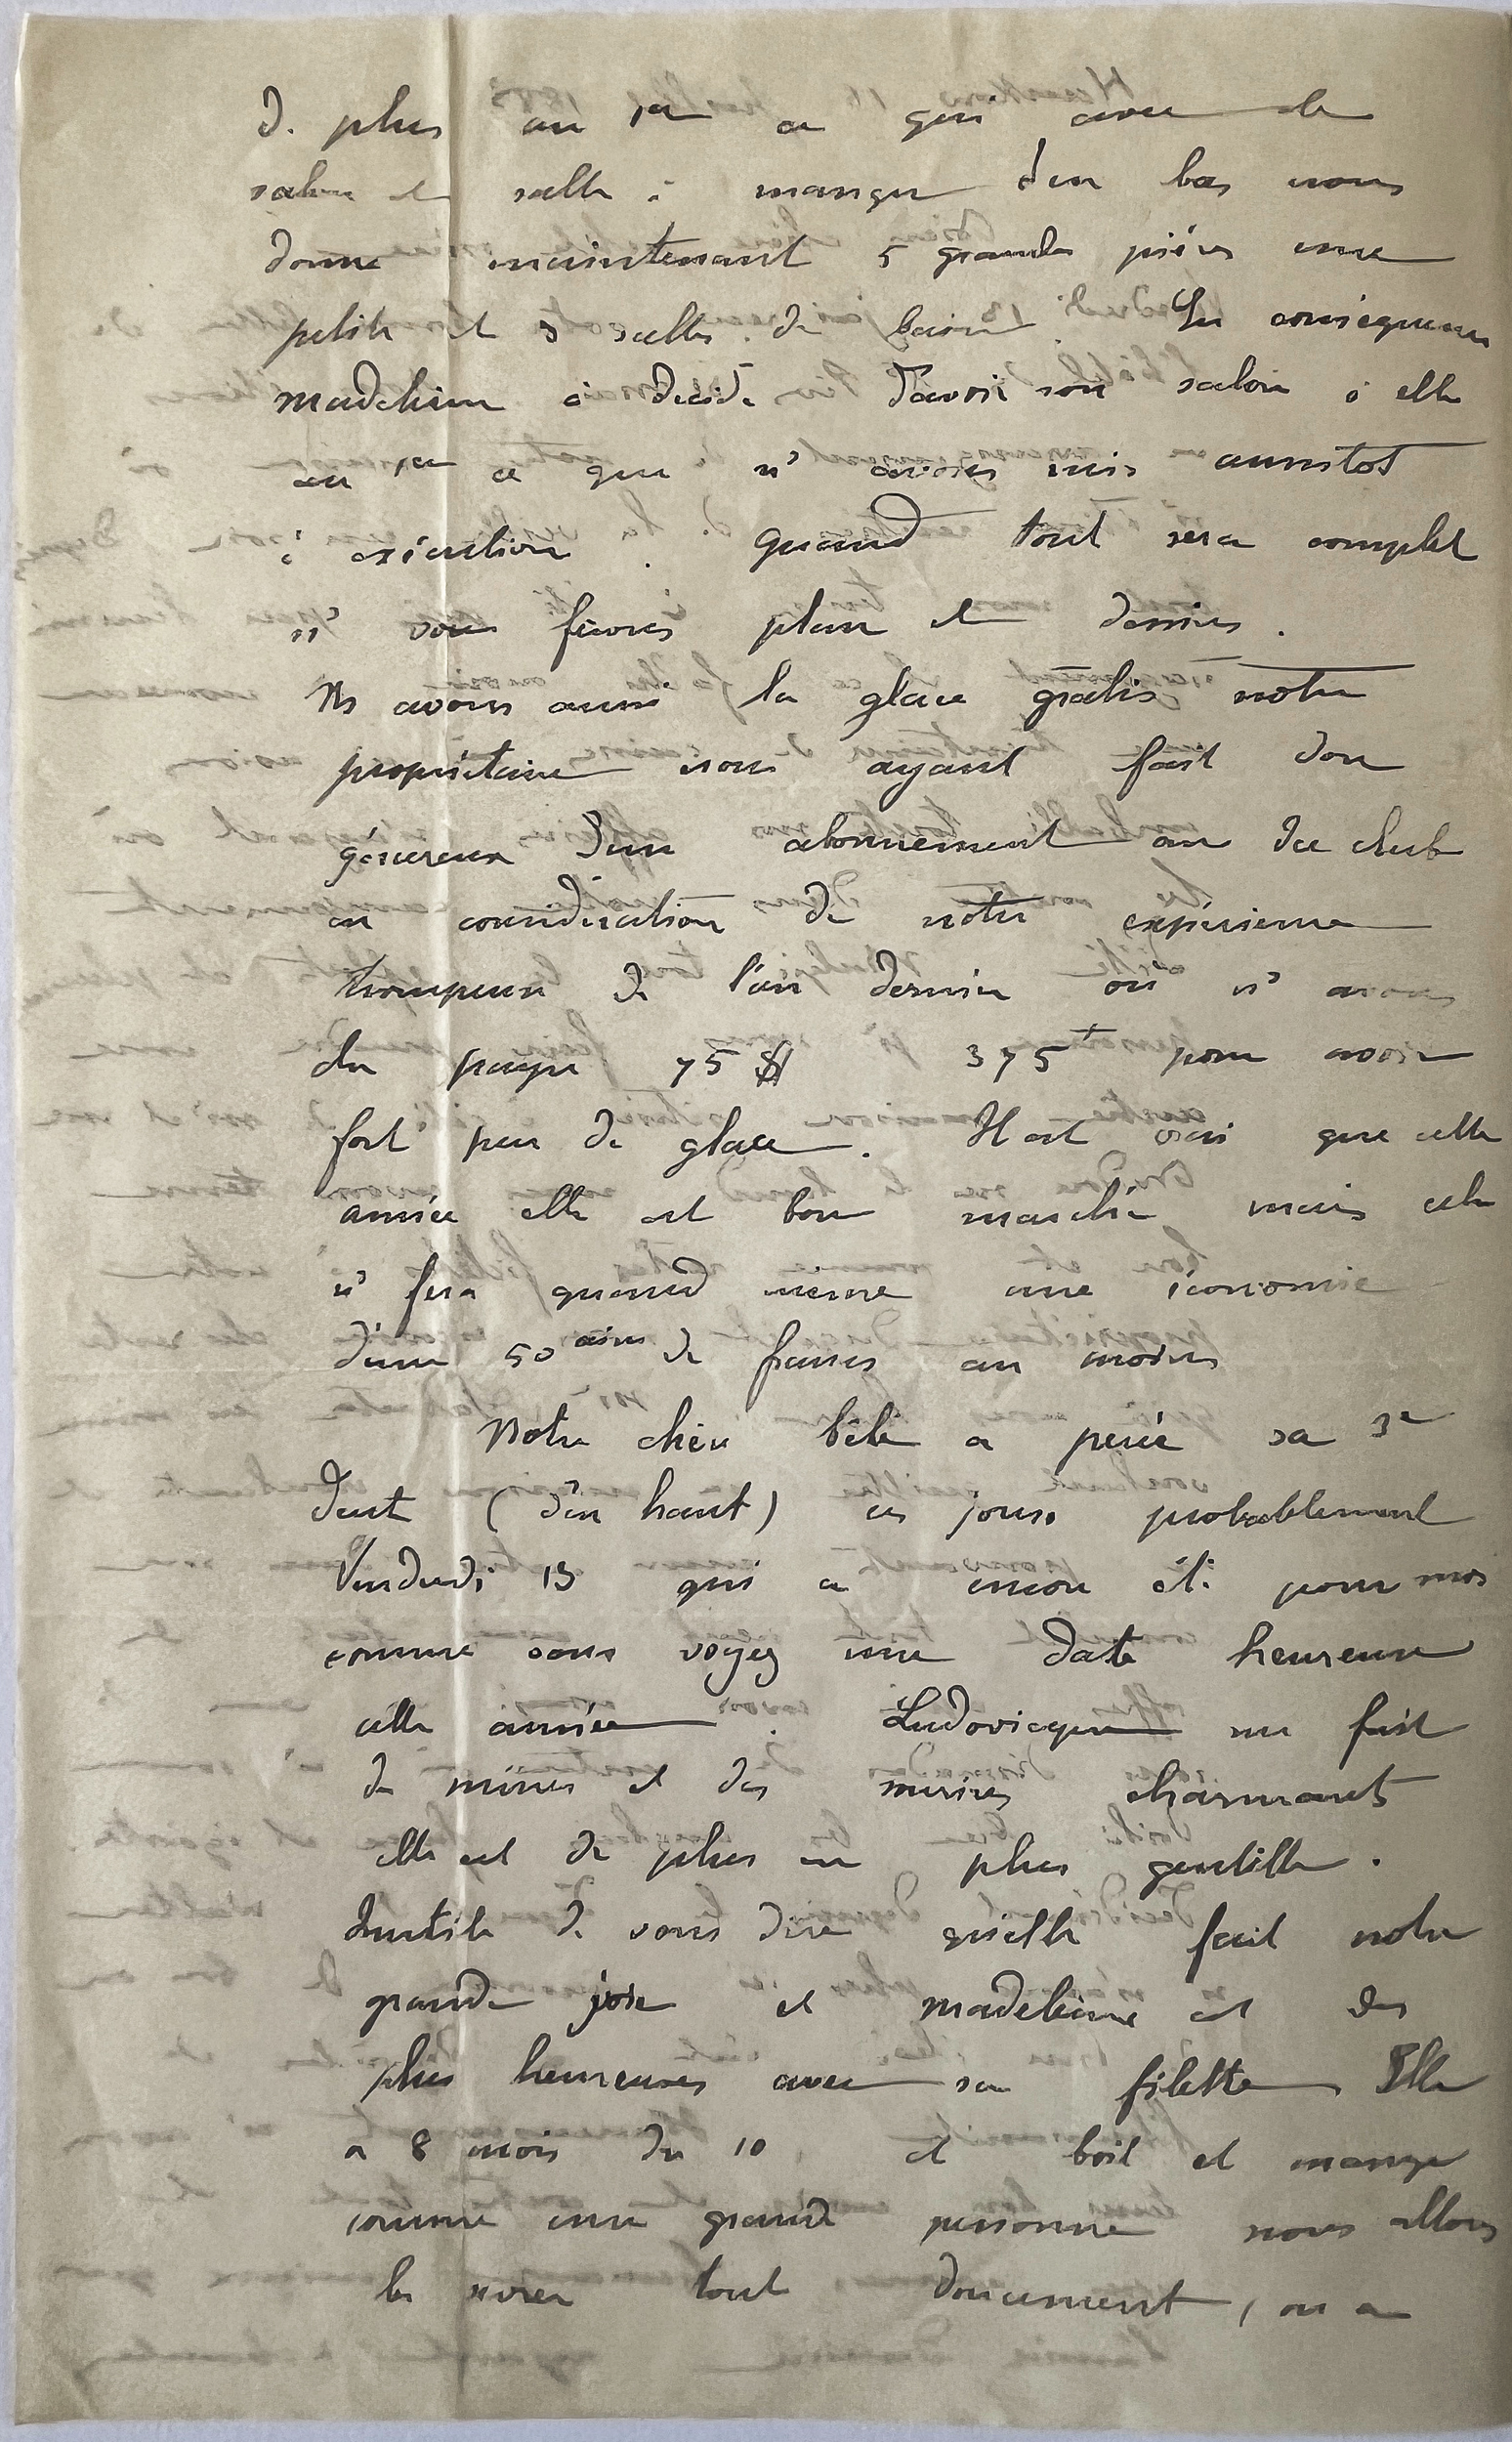 de plus au 1er ce qui avec le
salon et salle à manger d'en bas nous
donne maintenant 5 grandes pièces une
petite et 3 salles de bain. En conséquence
Madeleine a décidé d'avoir son salon à elle
au 1er ce que n's avons mis aussitot
à exécution. quand tout sera complet
n's vous ferons plan et dessins.
Ns avons aussi la glace gratis notre
propriétaire nous ayant fait don
généreux d'un abonnement au Ice club
en considération de notre expérience
trompeuse de l'an dernier où n's avons
du payer 75 $ 375f pour avoir
fort peu de glace. Il est vrai que cette
année elle est bon marché mais cela
n's fera quand même une économie
d'une 50aine de francs au moins
Notre chère bébé a percé sa 3e
dent (d'en haut) ces jours probablement
Vendredi 13 qui a encore été pour nos
comme vous voyez une date heureuse
cette année. Ludovicque me fait
de mines et des sourires charmants
elle est de plus en plus gentille.
Inutile de vous dire qu'elle fait notre
grande joie et Madeleine est des
plus heureuses avec sa filette. Elle
a 8 mois du 10 et boit et mange
comme une grande personne nous allons
la sevrer tout doucement, on a